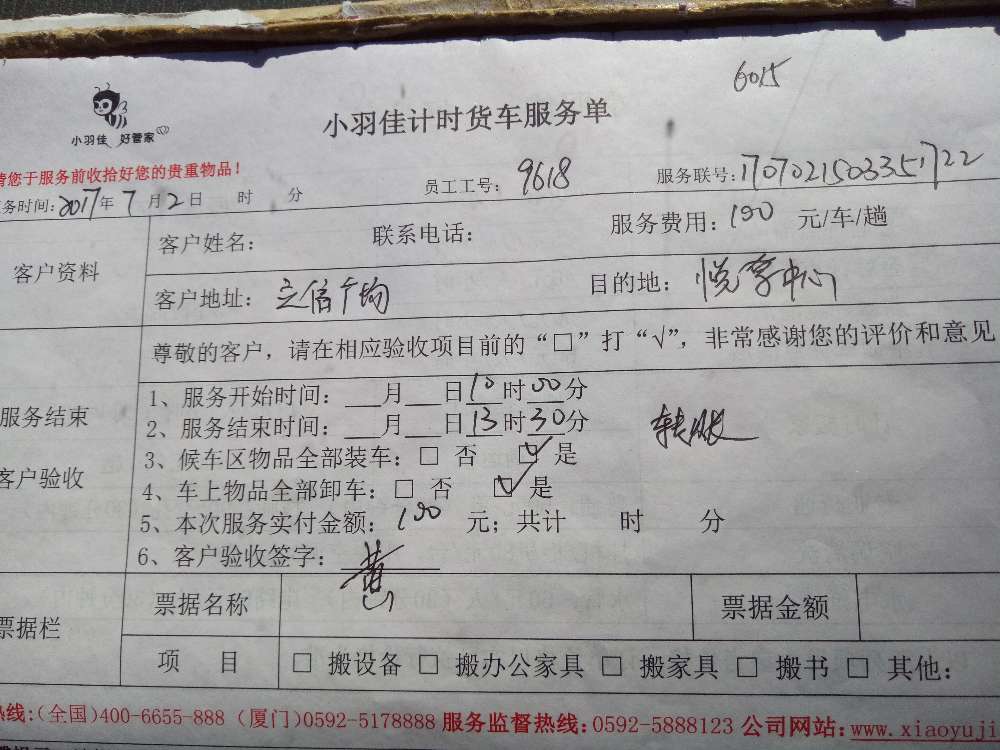 6015
小羽佳 好管家
小羽佳计时货车服务单
请您于服务前收拾好您的贵重物品!
员工工号: 9618
服务联号: 1707021503351722
务时间: 2017年 7月2日 时 分
客户资料
客户姓名: 联系电话: 服务费用: 190 元/车/趟
客户地址: 立信广场 目的地: 悦享中心
服务结束
客户验收
尊敬的客户，请在相应验收项目前的“□”打“√”，非常感谢您的评价和意见
1、服务开始时间: ___月___日10时00分
2、服务结束时间: ___月___日13时30分
转账
3、候车区物品全部装车: □ 否 ☑ 是
4、车上物品全部卸车: □ 否 ☑ 是
5、本次服务实付金额: 190 元; 共计 时 分
6、客户验收签字: 黄
票据栏
票据名称 票据金额
项 目 □ 搬设备 □ 搬办公家具 □ 搬家具 □ 搬书 □ 其他:
热线:(全国)400-6655-888 (厦门)0592-5178888 服务监督热线: 0592-5888123 公司网站: www.xiaoyuji